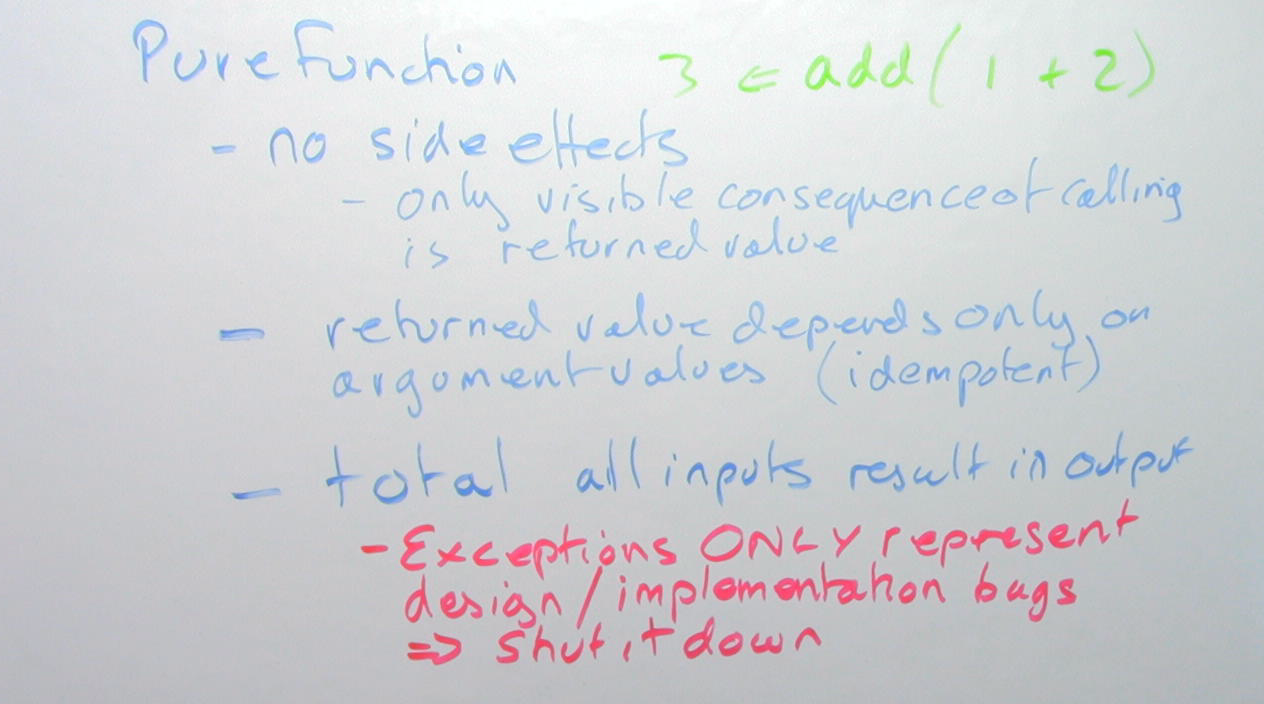 Pure Function 3 ⇐ add(1 + 2)
- no side effects
- only visible consequence of calling
is returned value
- returned value depends only on
argument values (idempotent)
- total all inputs result in output
- Exceptions ONLY represent
design/implementation bugs
=> shut it down